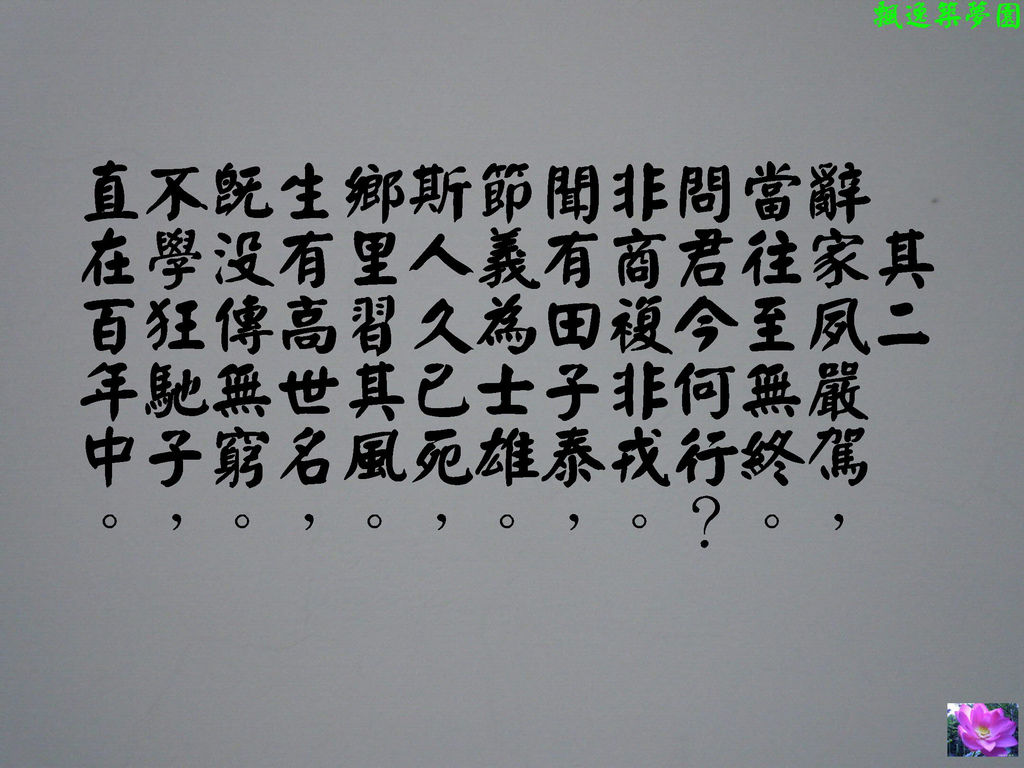 飄逸築夢園
其二
辭家夙嚴駕，
當往至無終。
問君今何行？
非商複非戎。
聞有田子泰，
節義為士雄。
斯人久已死，
鄉里習其風。
生有高世名，
既没傳無窮。
不學狂馳子，
直在百年中。